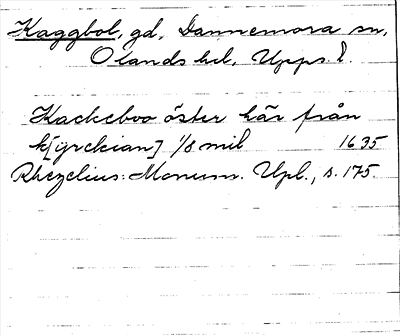 Kaggbol, gd, Dannemora sn,
Olands hd, Upps. l.
Kackeboo öster här från
k[yrckian] 1/8 mil 1635
Rhezelius: Monum. Upl., s. 175.